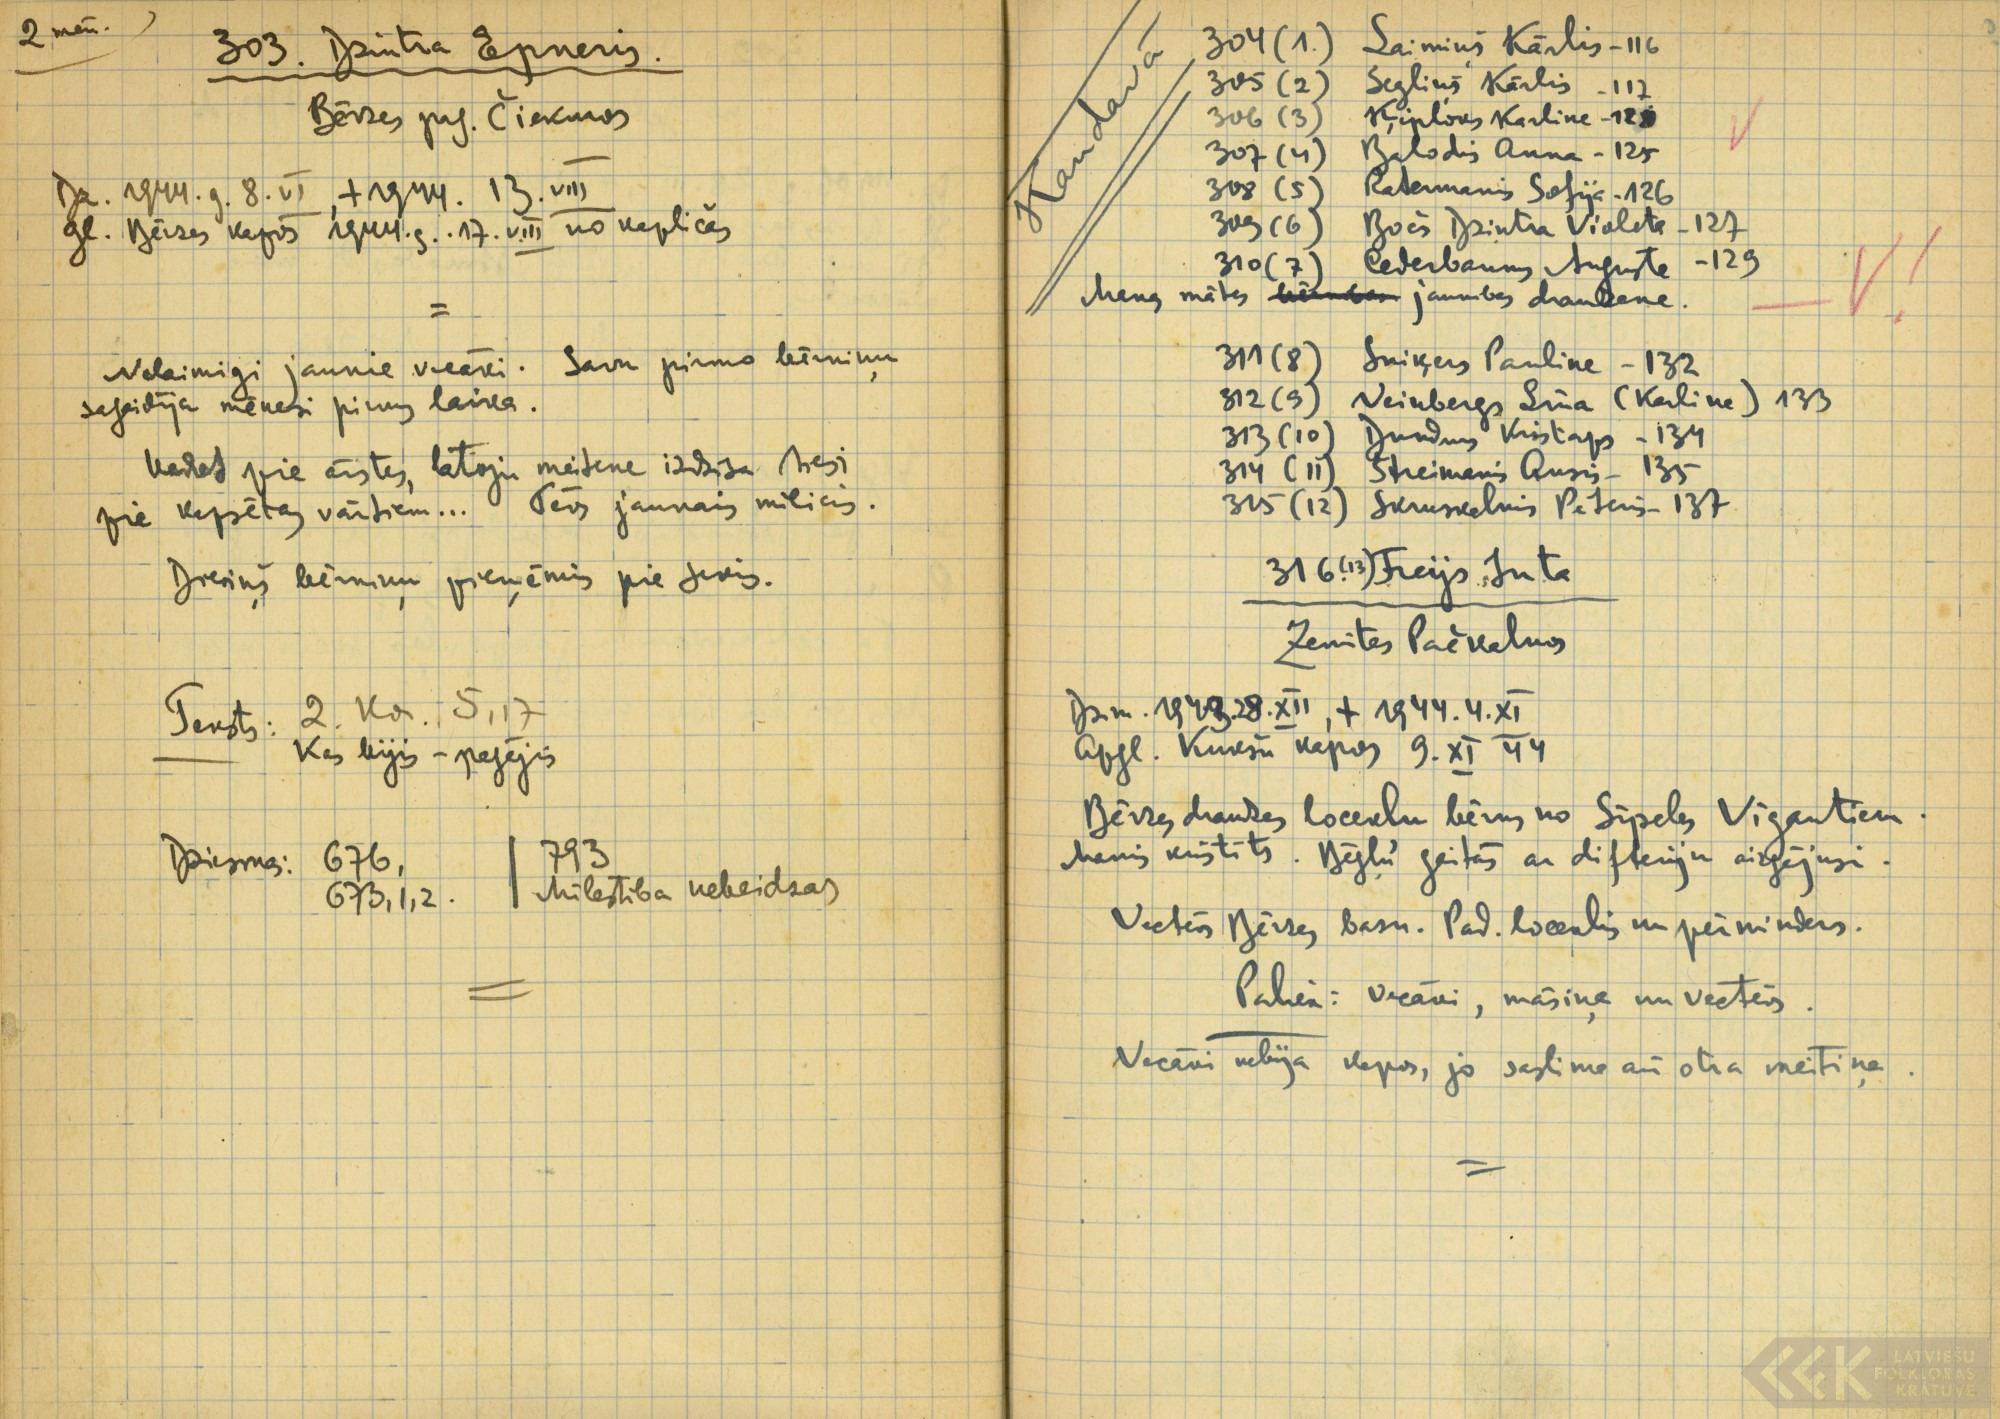 2 mēn.
303. Dzintra Epneris.
Bērzes pag. Čiekuros
Dz. 1944. g. 8. VI, + 1944. 13. VIII
gl. Bērzes kapos 1944. g. 17. VIII no kapličas
=
Nelaimīgi jaunie vecāki. Savu pirmo bērniņu
sagaidīja mēnesi pirms laika.
Vedot pie ārstes, meitene izdzisa tieši
pie kapsētas vārtiem... Tēvs jaunais milicis.
Dieviņš bērniņu pieņēmis pie sevis.
Teksts: 2. Kor. 5,17
Kas bijis - pagājis
Dziesmas: 676,
673,1,2.
793
Mīlestība nebeidzas
=
Kandavā
304 (1.) Laimiņš Kārlis - 116
305 (2) Segliņš Kārlis - 117
306 (3) Karline - 12
307 (4) Balodis Anna - 125
308 (5) Patermanis Sofija - 126
309 (6) Bočs Dzintra Violeta - 127
310 (7) Cederbaums Auguste - 129
Manas mātes jaunības draudzene.
- V!
311 (8) Sniķers Pauline - 132
312 (9) Veinbergs Līna (Karline) 133
313 (10) Dundurs Kristaps - 134
314 (11) Štreimanis Ansis - 135
315 (12) Skruskalnis Pēteris - 137
316 (13) Freijs Juta
Zemītes Pačkalnos
Dzim. 28. XII, + 1944. 4. XI
Apgl. Kukšu kapos 9. XI 44
Bērzes draudzes locekļu bērns no Sīpeles Vīgantiem.
Manis kristīts. Bēgļu gaitās ar difteriju aizgājusi.
Vectēvs Bērzes bazn. Pad. loceklis un pērminders.
Paliek: vecāki, māsiņa un vectēvs.
Vecāki nebija kapos, jo saslima arī otra meitiņa.
=
LATVIEŠU
FOLKLORAS
KRĀTUVE